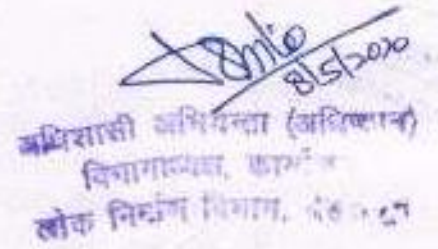 8/5/2020
अधिशासी अभियन्ता (अधिष्ठान)
विभागाध्यक्ष,
लोक निर्माण विभाग,